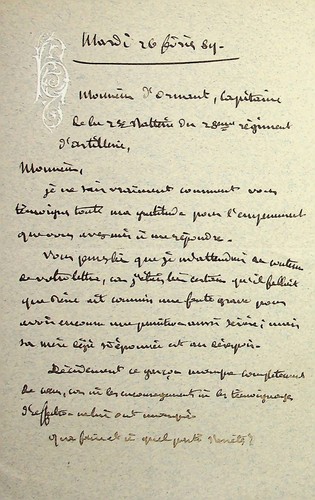 Mardi 26 février 89.
Monsieur d'Ormant, Capitaine
de la 2e Batterie du 28ème régiment
d'artillerie,
Monsieur,
je ne sais vraiment comment vous
témoigner toute ma gratitude pour l'empressement
que vous avez mis à me répondre.
Vous pensez bien que je m'attendais au contenu
de votre lettre, car j'étais bien certain qu'il fallait
que ait commis une faute grave pour
avoir encouru une punition aussi sévère; mais
sa mère déjà si éprouvée est au désespoir.
Décidément ce garçon manque complètement
de cœur, car ni les encouragements ni les témoignages
d'affection ne lui ont manqué.